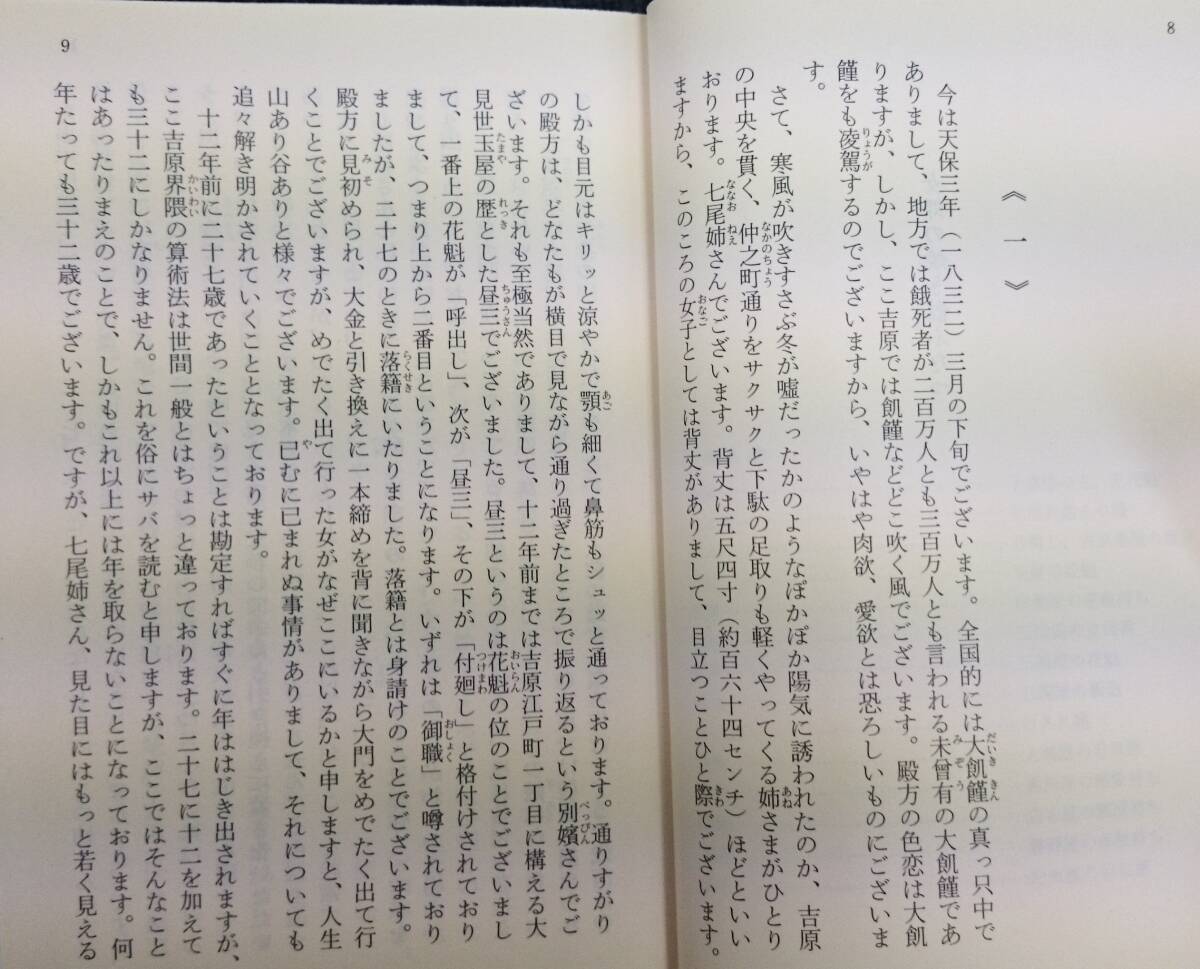 8
《一》
今は天保三年（一八三二）三月の下旬でございます。全国的には大飢饉の真っ只中で
ありまして、地方では餓死者が二百万人とも三百万人とも言われる未曾有の大飢饉であ
りますが、しかし、ここ吉原では飢饉などどこ吹く風でございます。殿方の色恋は大飢
饉をも凌駕するのでございますから、いやはや肉欲、愛欲とは恐ろしいものにございま
す。
さて、寒風が吹きすさぶ冬が嘘だったかのようなぽかぽか陽気に誘われたのか、吉原
の中央を貫く、仲之町通りをサクサクと下駄の足取りも軽くやってくる姉さまがひとり
おります。七尾姉さんでございます。背丈は五尺四寸（約百六十四センチ）ほどといい
ますから、このころの女子としては背丈がありまして、目立つことひと際でございます。
9
しかも目元はキリッと涼やかで顎も細くて鼻筋もシュッと通っております。通りすがり
の殿方は、どなたもが横目で見ながら通り過ぎたところで振り返るという別嬪さんでご
ざいます。それも至極当然でありまして、十二年前までは吉原江戸町一丁目に構える大
見世玉屋の歴とした昼三でございました。昼三というのは花魁の位のことでございまし
て、一番上の花魁が「呼出し」、次が「昼三」、その下が「付廻し」と格付けされており
まして、つまり上から二番目ということになります。いずれは「御職」と噂されており
ましたが、二十七のときに落籍にいたりました。落籍とは身請けのことでございます。
殿方に見初められ、大金と引き換えに一本締めを背に聞きながら大門をめでたく出て行
くことでございますが、めでたく出て行った女がなぜここにいるかと申しますと、人生
山あり谷ありと様々でございます。已むに已まれぬ事情がありまして、それについても
追々解き明かされていくこととなっております。
十二年前に二十七歳であったということは勘定すればすぐに年ははじき出されますが、
ここ吉原界隈の算術法は世間一般とはちょっと違っております。二十七に十二を加えて
も三十二にしかなりません。これを俗にサバを読むと申しますが、ここではそんなこと
はあったりまえのことで、しかもこれ以上には年を取らないことになっております。何
年たっても三十二歳でございます。ですが、七尾姉さん、見た目にはもっと若く見える